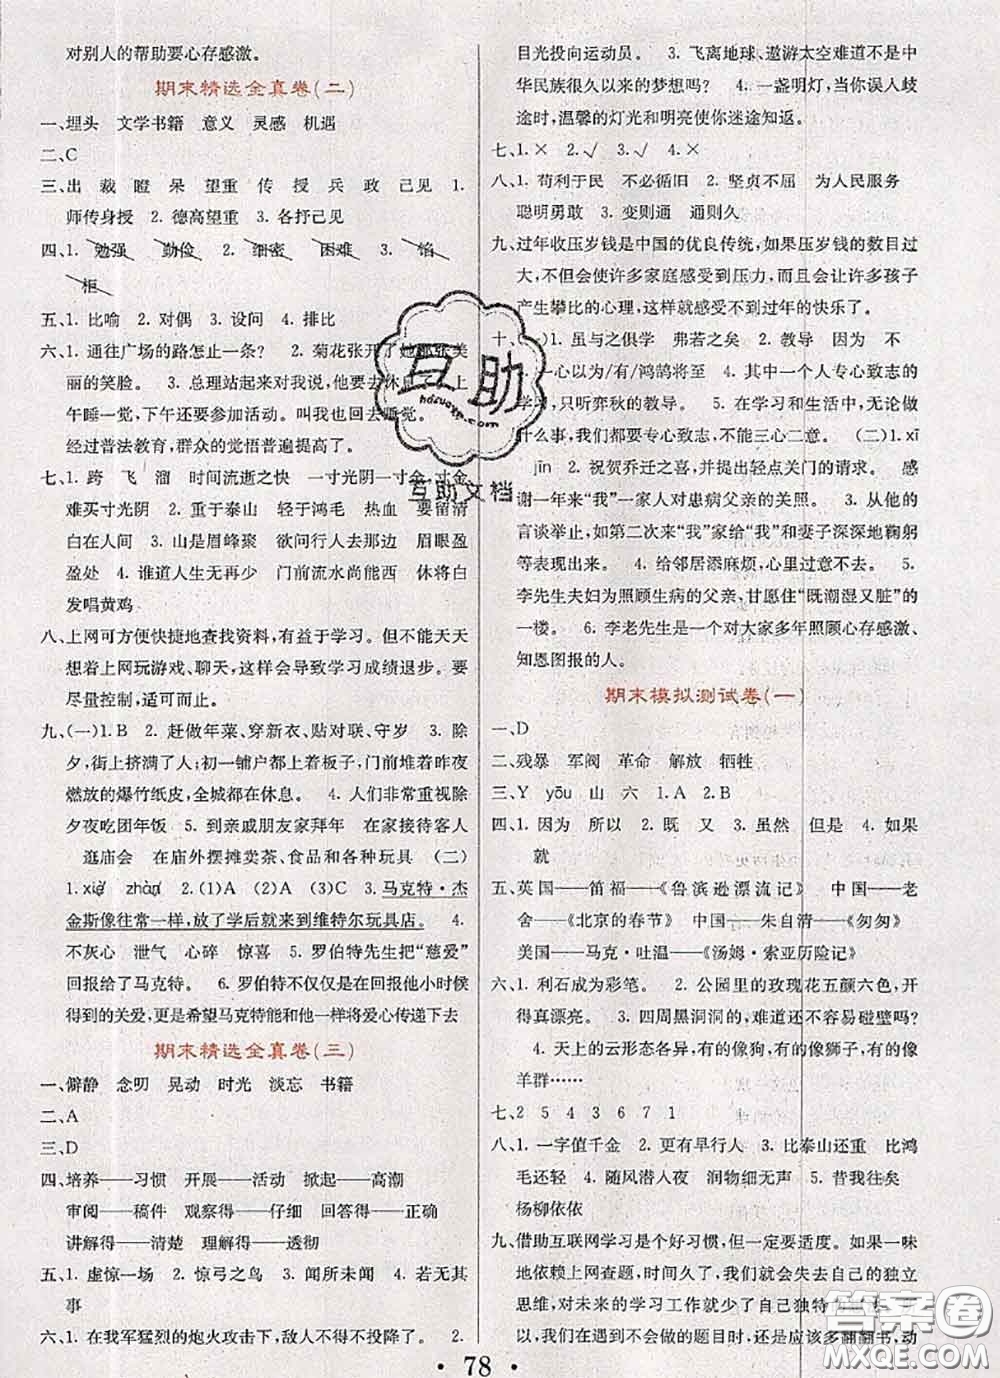 对别人的帮助要心存感激。
期末精选全真卷(二)
一、埋头 文学书籍 意义 灵感 机遇
二、C
三、出 裁 瞪 呆 望重 传 授 兵 政 己见 1.
师传身授 2. 德高望重 3. 各抒己见
四、1. 勉强 勤俭 2. 细密 困难 3. 馅
柜
五、1. 比喻 2. 对偶 3. 设问 4. 排比
六、1. 通往广场的路怎止一条? 2. 菊花张开了她那张美
丽的笑脸。 3. 总理站起来对我说,他要去休息了,上
午睡一觉,下午还要参加活动。叫我也回去睡觉。
经过普法教育,群众的觉悟普遍提高了。
七、1. 跨 飞 溜 时间流逝之快 一寸光阴一寸金,寸金
难买寸光阴 2. 重于泰山 轻于鸿毛 热血 要留清
白在人间 3. 山是眉峰聚 欲问行人去那边 眉眼盈
盈处 4. 谁道人生无再少 门前流水尚能西 休将白
发唱黄鸡
八、上网可方便快捷地查找资料,有益于学习。但不能天天
想着上网玩游戏、聊天,这样会导致学习成绩退步。要
尽量控制,适可而止。
九、(一)1. B 2. 赶做年菜、穿新衣、贴对联、守岁 3. 除
夕,街道上拥挤不动;初一铺户都上着板子,门前堆着昨夜
燃放的爆竹纸皮,全城都在休息。 4. 人们非常重视除
夕夜吃团年饭 5. 到亲戚朋友家拜年 在家接待客人
逛庙会 在庙外摆摊卖茶、食品和各种玩具 (二)
1. xiè zhàn 2. (1)A (2)A (3)C 3. 马克特·杰
金斯像往常一样,放了学后就来到维特尔玩具店。 4.
不灰心 泄气 心碎 惊喜 5. 罗伯特先生把“慈爱”
回报给了马克特。 6. 罗伯特不仅仅是在回报他小时候
得到的关爱,更是希望马克特能和他一样将爱心传递下去
期末精选全真卷(三)
一、僻静 念叨 晃动 时光 淡忘 书籍
二、A
三、D
四、培养——习惯 开展——活动 掀起——高潮
审阅——稿件 观察得——仔细 回答得——正确
讲解得——清楚 理解得——透彻
五、1. 虚惊一场 2. 惊弓之鸟 3. 闻所未闻 4. 若无其
事
六、1. 在我军猛烈的炮火攻击下,敌人不得不投降了。 2.
目光投向运动员。 3. 飞离地球、遨游太空难道不是中
华民族很久以来的梦想吗? 4. 一盏明灯,当你误入歧
途时,温馨的灯光和明亮使你迷途知返。
七、1. × 2. √ 3. √ 4. ×
八、1. 苟利于民 不必循旧 2. 坚贞不屈 为人民服务
聪明勇敢 3. 变则通 通则久
九、过年收压岁钱是中国的优良传统,如果压岁钱的数目过
大,不但会使许多家庭感受到压力,而且会让许多孩子
产生攀比的心理,这样就感受不到过年的快乐了。
十、(一)1. 虽与之俱学 弗若之矣 2. 教导 如果 不
一心以为/有/鸿鹄将至 4. 其中一个人专心致志的
学习,只听弈秋的教导。 5. 在学习和生活中,无论做
什么事,我们都要专心致志,不能三心二意。 (二)1. xī
jīn 2. 祝贺乔迁之喜,并提出轻点关门的请求。 感
谢一年来“我”一家人对患病父亲的关照。 3. 从他的
言谈举止,如第二次来“我”家给“我”和妻子深深地鞠躬
等表现出来。 4. 给邻居添麻烦,心里过意不去。 5.
李先生夫妇为照顾生病的父亲,甘愿住“既潮湿又脏”的
一楼。 6. 李老先生是一个对大家多年照顾心存感激、
知恩图报的人。
期末模拟测试卷(一)
一、D
二、残暴 军阀 革命 解放 牺牲
三、Y yōu 山 六 1. A 2. B
四、1. 因为 所以 2. 既 又 3. 虽然 但是 4. 如果
就
五、英国——笛福——《鲁滨逊漂流记》 中国——老
舍——《北京的春节》 中国——朱自清——《匆匆》
美国——马克·吐温——《汤姆·索亚历险记》
六、1. 利石成为彩笔。 2. 公园里的玫瑰花五颜六色,开
得真漂亮。 3. 四周黑洞洞的,难道还不容易碰壁吗?
4. 天上的云形态各异,有的像狗,有的像狮子,有的像
羊群……
七、2 5 4 3 6 7 1
八、1. 一字值千金 2. 更有早行人 3. 比泰山还重 比鸿
毛还轻 4. 随风潜入夜 润物细无声 5. 昔我往矣
杨柳依依
九、借助互联网学习是个好习惯,但一定要适度。如果一味
地依赖上网查题,时间久了,我们就会失去自己的独立
思维,对未来的学习工作就少了自己独特
以,我们在遇到不会做的题目时,应该多翻翻书,动
· 78 ·
互助
hdzuoye.com
互助文档
答案圈
MXQE.COM